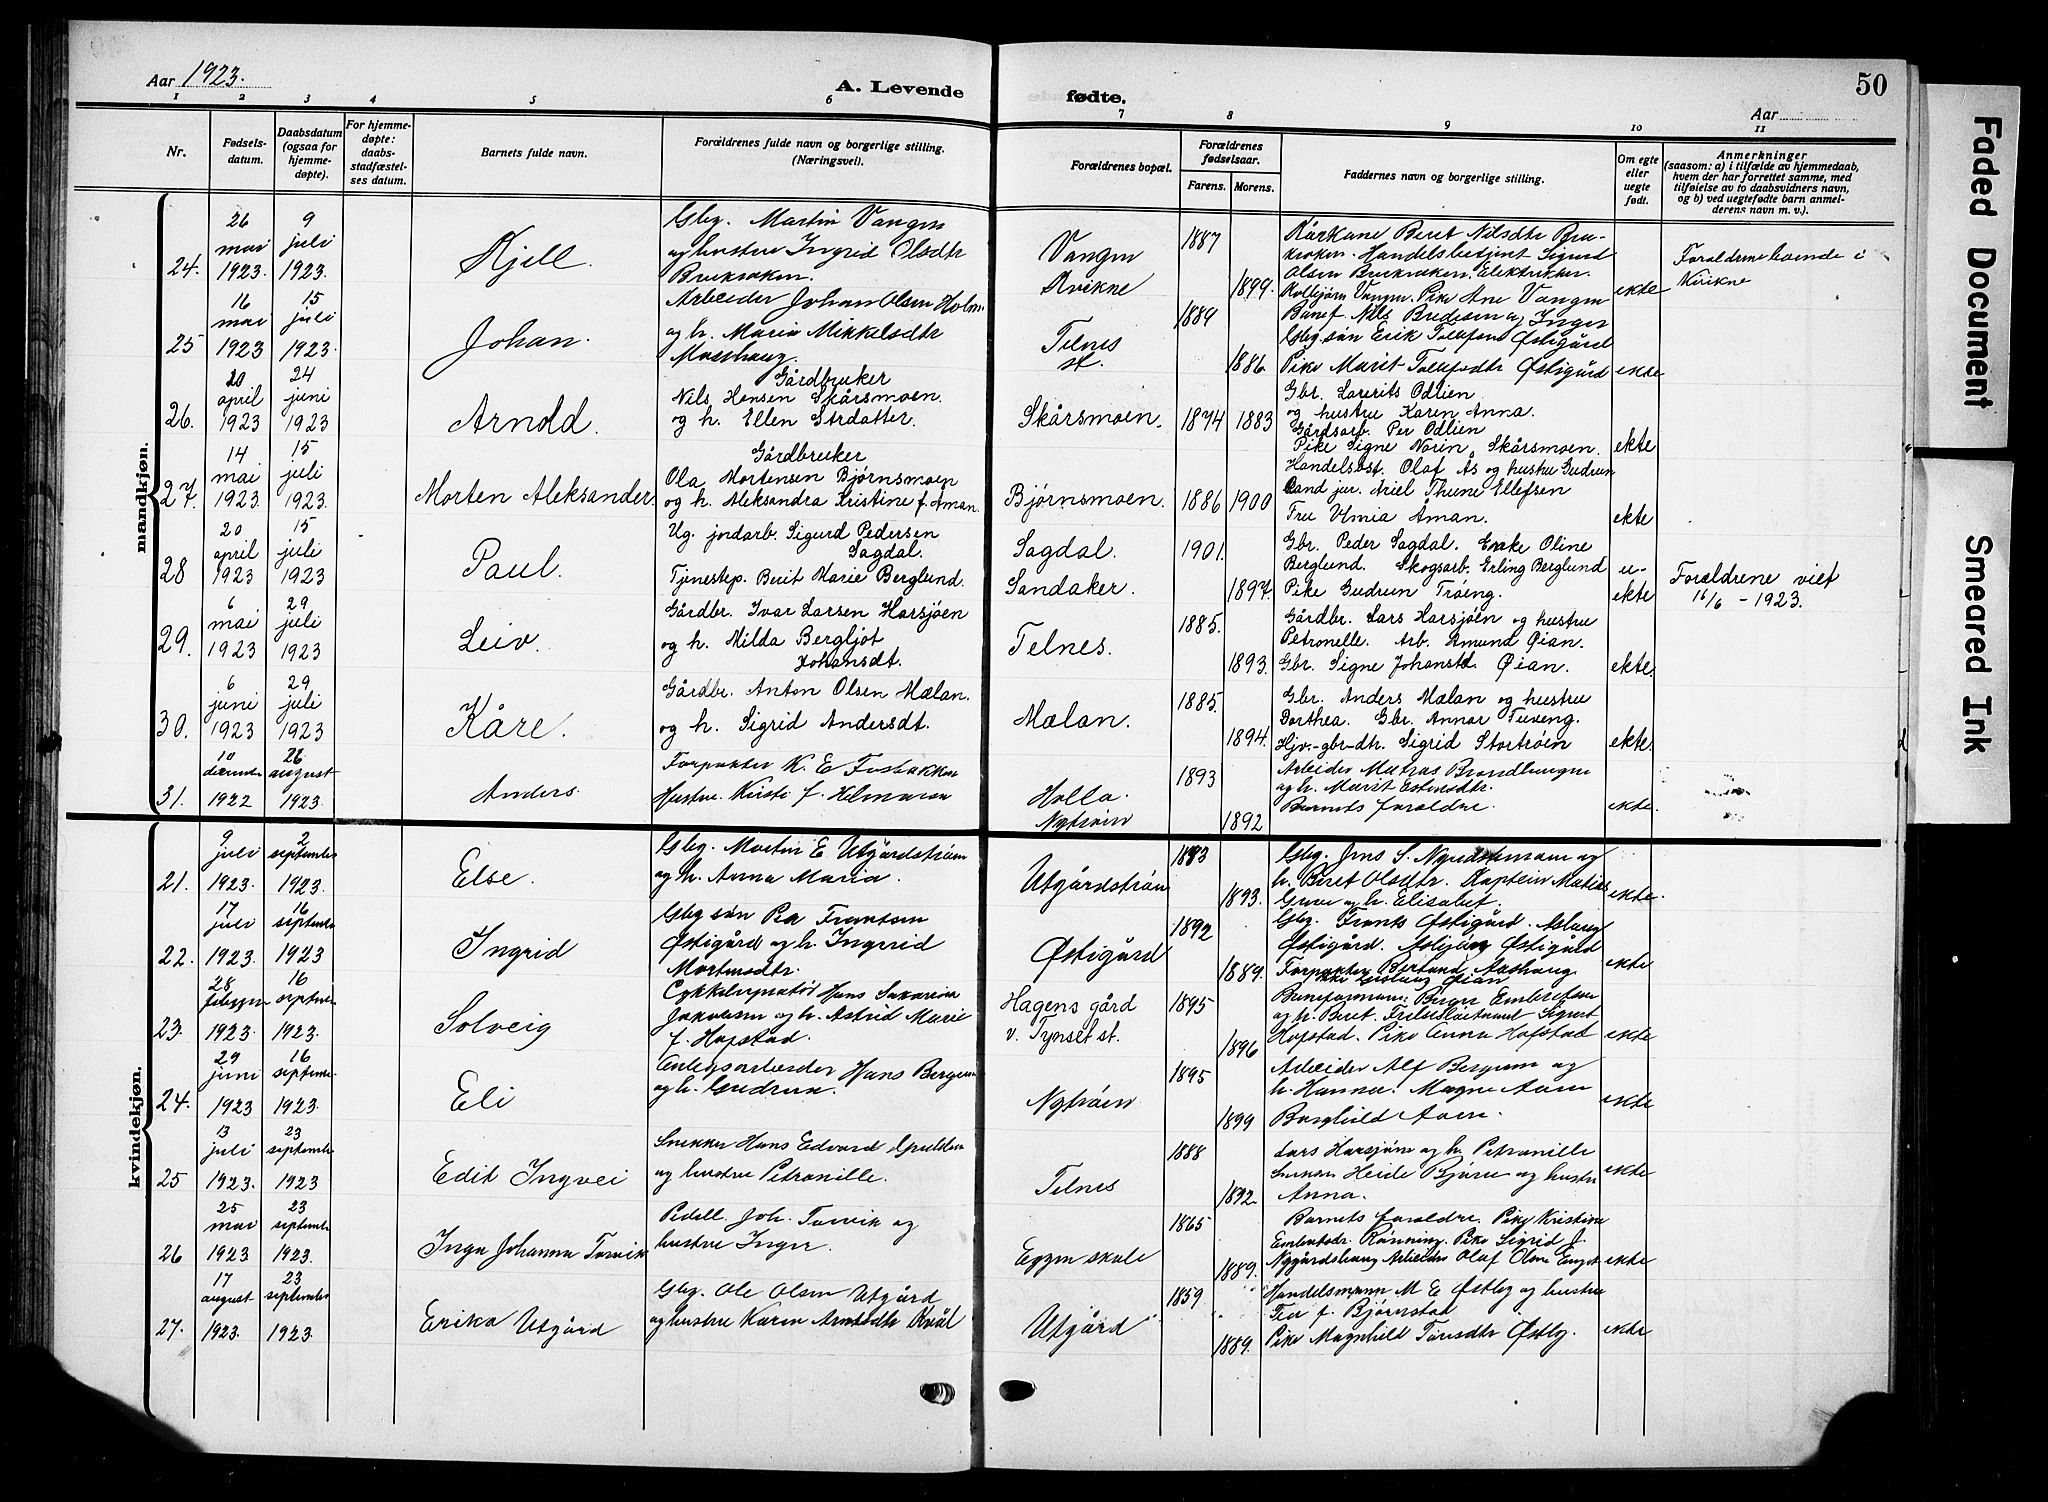 Aar 1923.
A. Levende fødte.
50
Aar
1 2 3 4 5 6 7 8 9 10 11
Nr.
Fødsels-
datum.
Daabsdatum
(ogsaa for
hjemme-
døpte).
For hjemme-
døpte:
daabs-
stadfæstel-
ses datum.
Barnets fulde navn.
Forældrenes fulde navn og borgerlige stilling.
(Næringsvei).
Forældrenes bopæl.
Forældrenes
fødselsaar.
Farens. Morens.
Faddernes navn og borgerlige stilling.
Om egte
eller
uegte
født.
Anmerkninger
(saasom: a) i tilfælde av hjemmedaab,
hvem der har forrettet samme, med
tilføielse av to daabsvidners navn,
og b) ved uegtefødte barn anmel-
derens navn m. v.).
mandkjøn.
24. 26 mai 1923. 9 juli 1923.
Kjell.
Gbg. Martin Vangen
og hustru Ingrid Olsdtr
Brukroken.
Vangen
Kvikne
1887
1899.
Kårkone Beret Nilsdtr Bru-
kroken. Handelsbetjent Sigurd
Olsen Brukroken. Elektriker
Kolbjørn Vangen. Pike Ane Vangen
ekte
Foreldrene boende i
Kvikne
25 16 mai 1923 15 juli 1923.
Johan.
Arbeider Johan Olsen Holm
og h. Maria Mikkelsdtr
Moshaug.
Telnes
st.
1889
1886.
Banef. Nils Bredesen og Inger
Gbg. søn Erik Tollefsen Østigård
Pike Marit Tollefsdtr Østigård
ekte
26. 20 april 1923 24 juni 1923
Arnold.
Gårdbruker
Nils Hansen Skårsmoen.
og h. Ellen Strdatter.
Skårsmoen.
1874 1883
Gbr. Laurits Odlien
og hustru Karen Anna.
Gårdsarb. Per Odlien
Pike Signe Norin Skårsmoen.
ekte
27. 14 mai 1923 15 juli 1923.
Morten Aleksander.
Gårdbruker
Ola Mortensen Bjørnsmoen
og h. Aleksandra Kristine f. Åman.
Bjørnsmoen.
1886 1900
Handelsbst. Olaf Ås og hustru Gudrun
Cand jur. Ariel Thune Ellefsen
Fru Olmia Åman.
ekte
28 20 april 1923 15 juli 1923
Paul.
Ug. jordarb. Sigurd Pedersen
Sagdal.
Tjenestep. Berit Marie Berglund.
Sagdal.
Sandaker.
1901.
1897.
Gbr. Peder Sagdal. Enke Oline
Berglund. Skogsarb. Erling Berglund
Pike Gudrun Trøeng.
u-
ekte
Forældrene viet
16/6 - 1923.
29. 6 mai 1923 29 juli 1923
Leiv.
Gårdbr. Ivar Larsen Harsjøen
og h. Milda Bergljot
Johansdt.
Telnes.
1885.
1893.
Gårdbr. Lars Harsjøen og hustru
Petronelle. Arb. Amund Øian.
Gbr. Signe Johansd. Øian.
ekte.
30. 6 juni 1923 29 juli 1923
Kåre.
Gårdbr. Anton Olsen Mælan.
og h. Sigrid Andersdt.
Mælan.
1885.
1894.
Gbr. Anders Mælan og hustru
Dorthea. Gbr. Annar Tuveng.
Hjv.-gbr-dtr. Sigrid Stortrøen
ekte.
31. 10 1922 26 august 1923.
Anders.
Forpakter K. E. Fosbakken
Hustru Kirsti f. Helmersen
Holla.
Nytrøen
1893
1892
Arbeider Matias Brandhaugen
og h. Marit Estensdtr.
Barnets foreldre.
ekte.
kvindekjøn.
21. 9 juli 1923. 2 september 1923.
Else.
Gbg. Morten E Utgårdstrøen
og h. Anna Maria.
Utgårdstrøen
1883
1893.
Gbg. Jens S. og
h. Beret Olsdtr. Kaptein Matias
og h. Elisabet.
ekte.
22. 17 juli 1923. 16 september 1923
Ingrid
Gbg søn Per Frantsen
Østigård og h. Ingrid
Mortensdtr.
Østigård
1892
1889.
Gbg. Frants Østigård. Aslaug
Østigård. Asbjørg Østigård
Forpakter Aashaug.
Øian
ekte
23. 28 1923 16 september 1923.
Solveig
Hans
og h. Astrid Marie
f. Hofstad.
Hagens gård
v. Tynset st.
1895
1896
Baneformann Birger Embretsen
og h. Beret. Sigurd
Hofstad. Pike Anna Hofstad
ekte
24. 29 juni 1923 16 september 1923.
Eli
Anlegsarbeider Hans Bergum
og h. Gudrun.
Nytrøen
1895
1899
Arbeider Alf Bergum og
h. Hanna. Magne Aaen
Borghild Aaen.
ekte
25 13 juli 1923. 23 september 1923
Edit Ingvei
Snekker Hans Edvard
og hustru Petronille.
Telnes
1888
1892.
Lars Harsjøen og h. Petronille
Heide Bjørn og hustru
Anna.
ekte
26 25 mai 1923 23 september 1923.
Inga Johanna Torvik
Pedell. Joh. Torvik og
hustru Inger.
Eggen skole
1865
1889.
Barnets foreldre. Pike Kristine
Embretsdr. Rønning. Pike Sigrid J.
Nygårdshaug Arbeider Olaf Olsen
ekte
27. 17 august 1923. 23 september 1923
Erika Utgård
Gbg. Ole Olsen Utgård
og hustru Karen Arnesdtr Kvål
Utgård
1859
1889.
Handelsmann M E Østby og hustru
Fru f. Bjørnstad
Pike Magnhild Tøresdtr Østby.
ekte
Faded Document
Smeared Ink